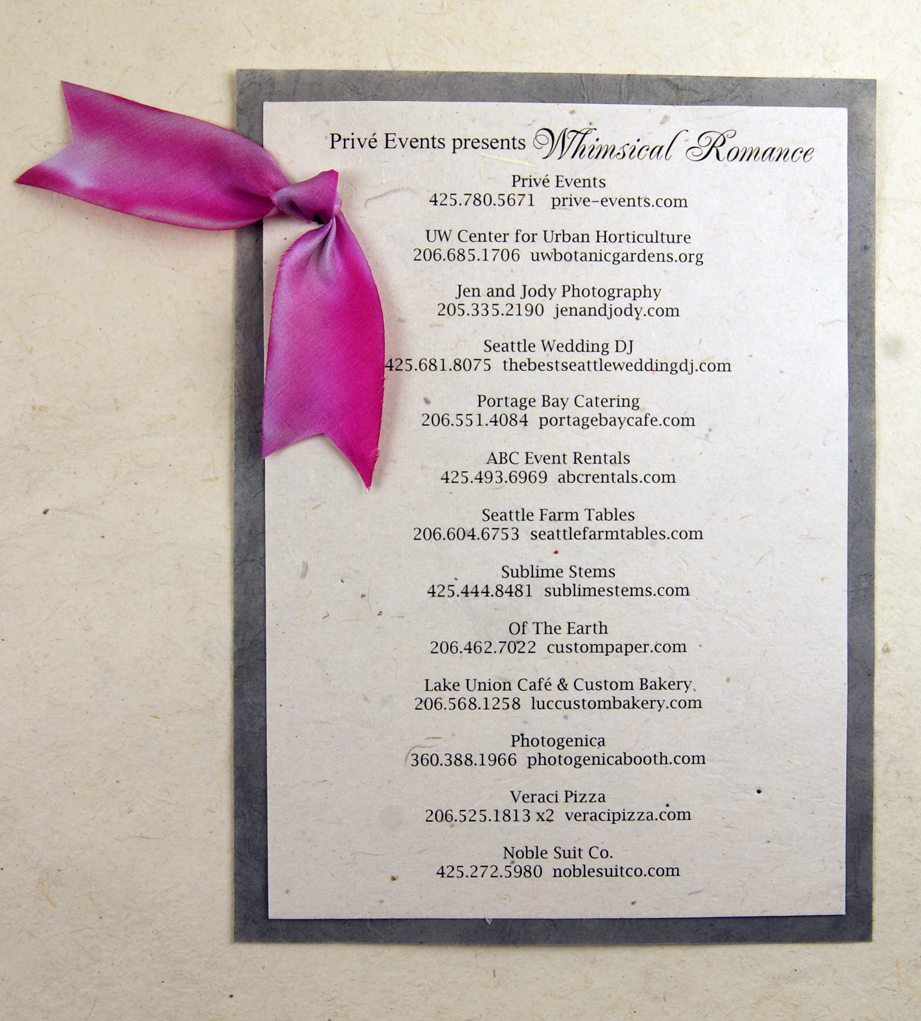 Privé Events presents Whimsical Romance
Privé Events
425.780.5671 prive-events.com
UW Center for Urban Horticulture
206.685.1706 uwbotanicgardens.org
Jen and Jody Photography
205.335.2190 jenandjody.com
Seattle Wedding DJ
425.681.8075 thebestseattleweddingdj.com
Portage Bay Catering
206.551.4084 portagebaycafe.com
ABC Event Rentals
425.493.6969 abcrentals.com
Seattle Farm Tables
206.604.6753 seattlefarmtables.com
Sublime Stems
425.444.8481 sublimestems.com
Of The Earth
206.462.7022 custompaper.com
Lake Union Café & Custom Bakery
206.568.1258 luccustombakery.com
Photogenica
360.388.1966 photogenicabooth.com
Veraci Pizza
206.525.1813 x2 veracipizza.com
Noble Suit Co.
425.272.5980 noblesuitco.com